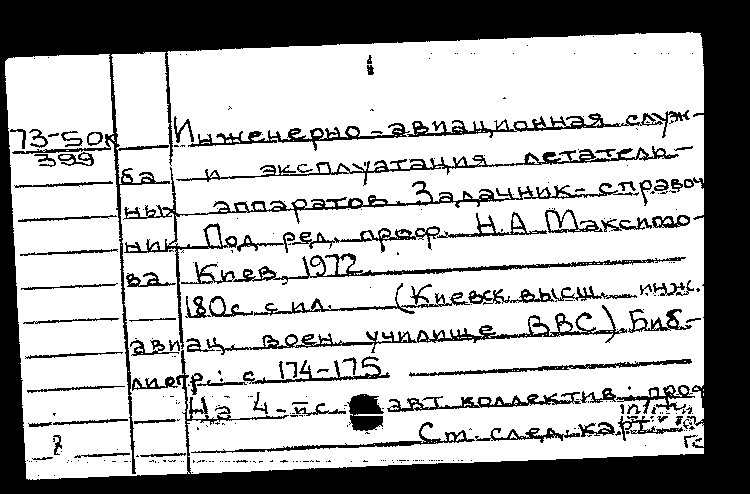 73-50к
399
Инженерно-авиационная служ-
ба и эксплуатация летатель-
ных аппаратов. Задачник-справоч
ник. Под ред. проф. Н.А Максимо-
ва. Киев, 1972.
180с с ил. (Киевск. высш. инж.
авиац. воен. училище ВВС). Биб-
лиогр.: с. 174-175.
На 4-й с. авт. коллектив: проф
См. след. карт.